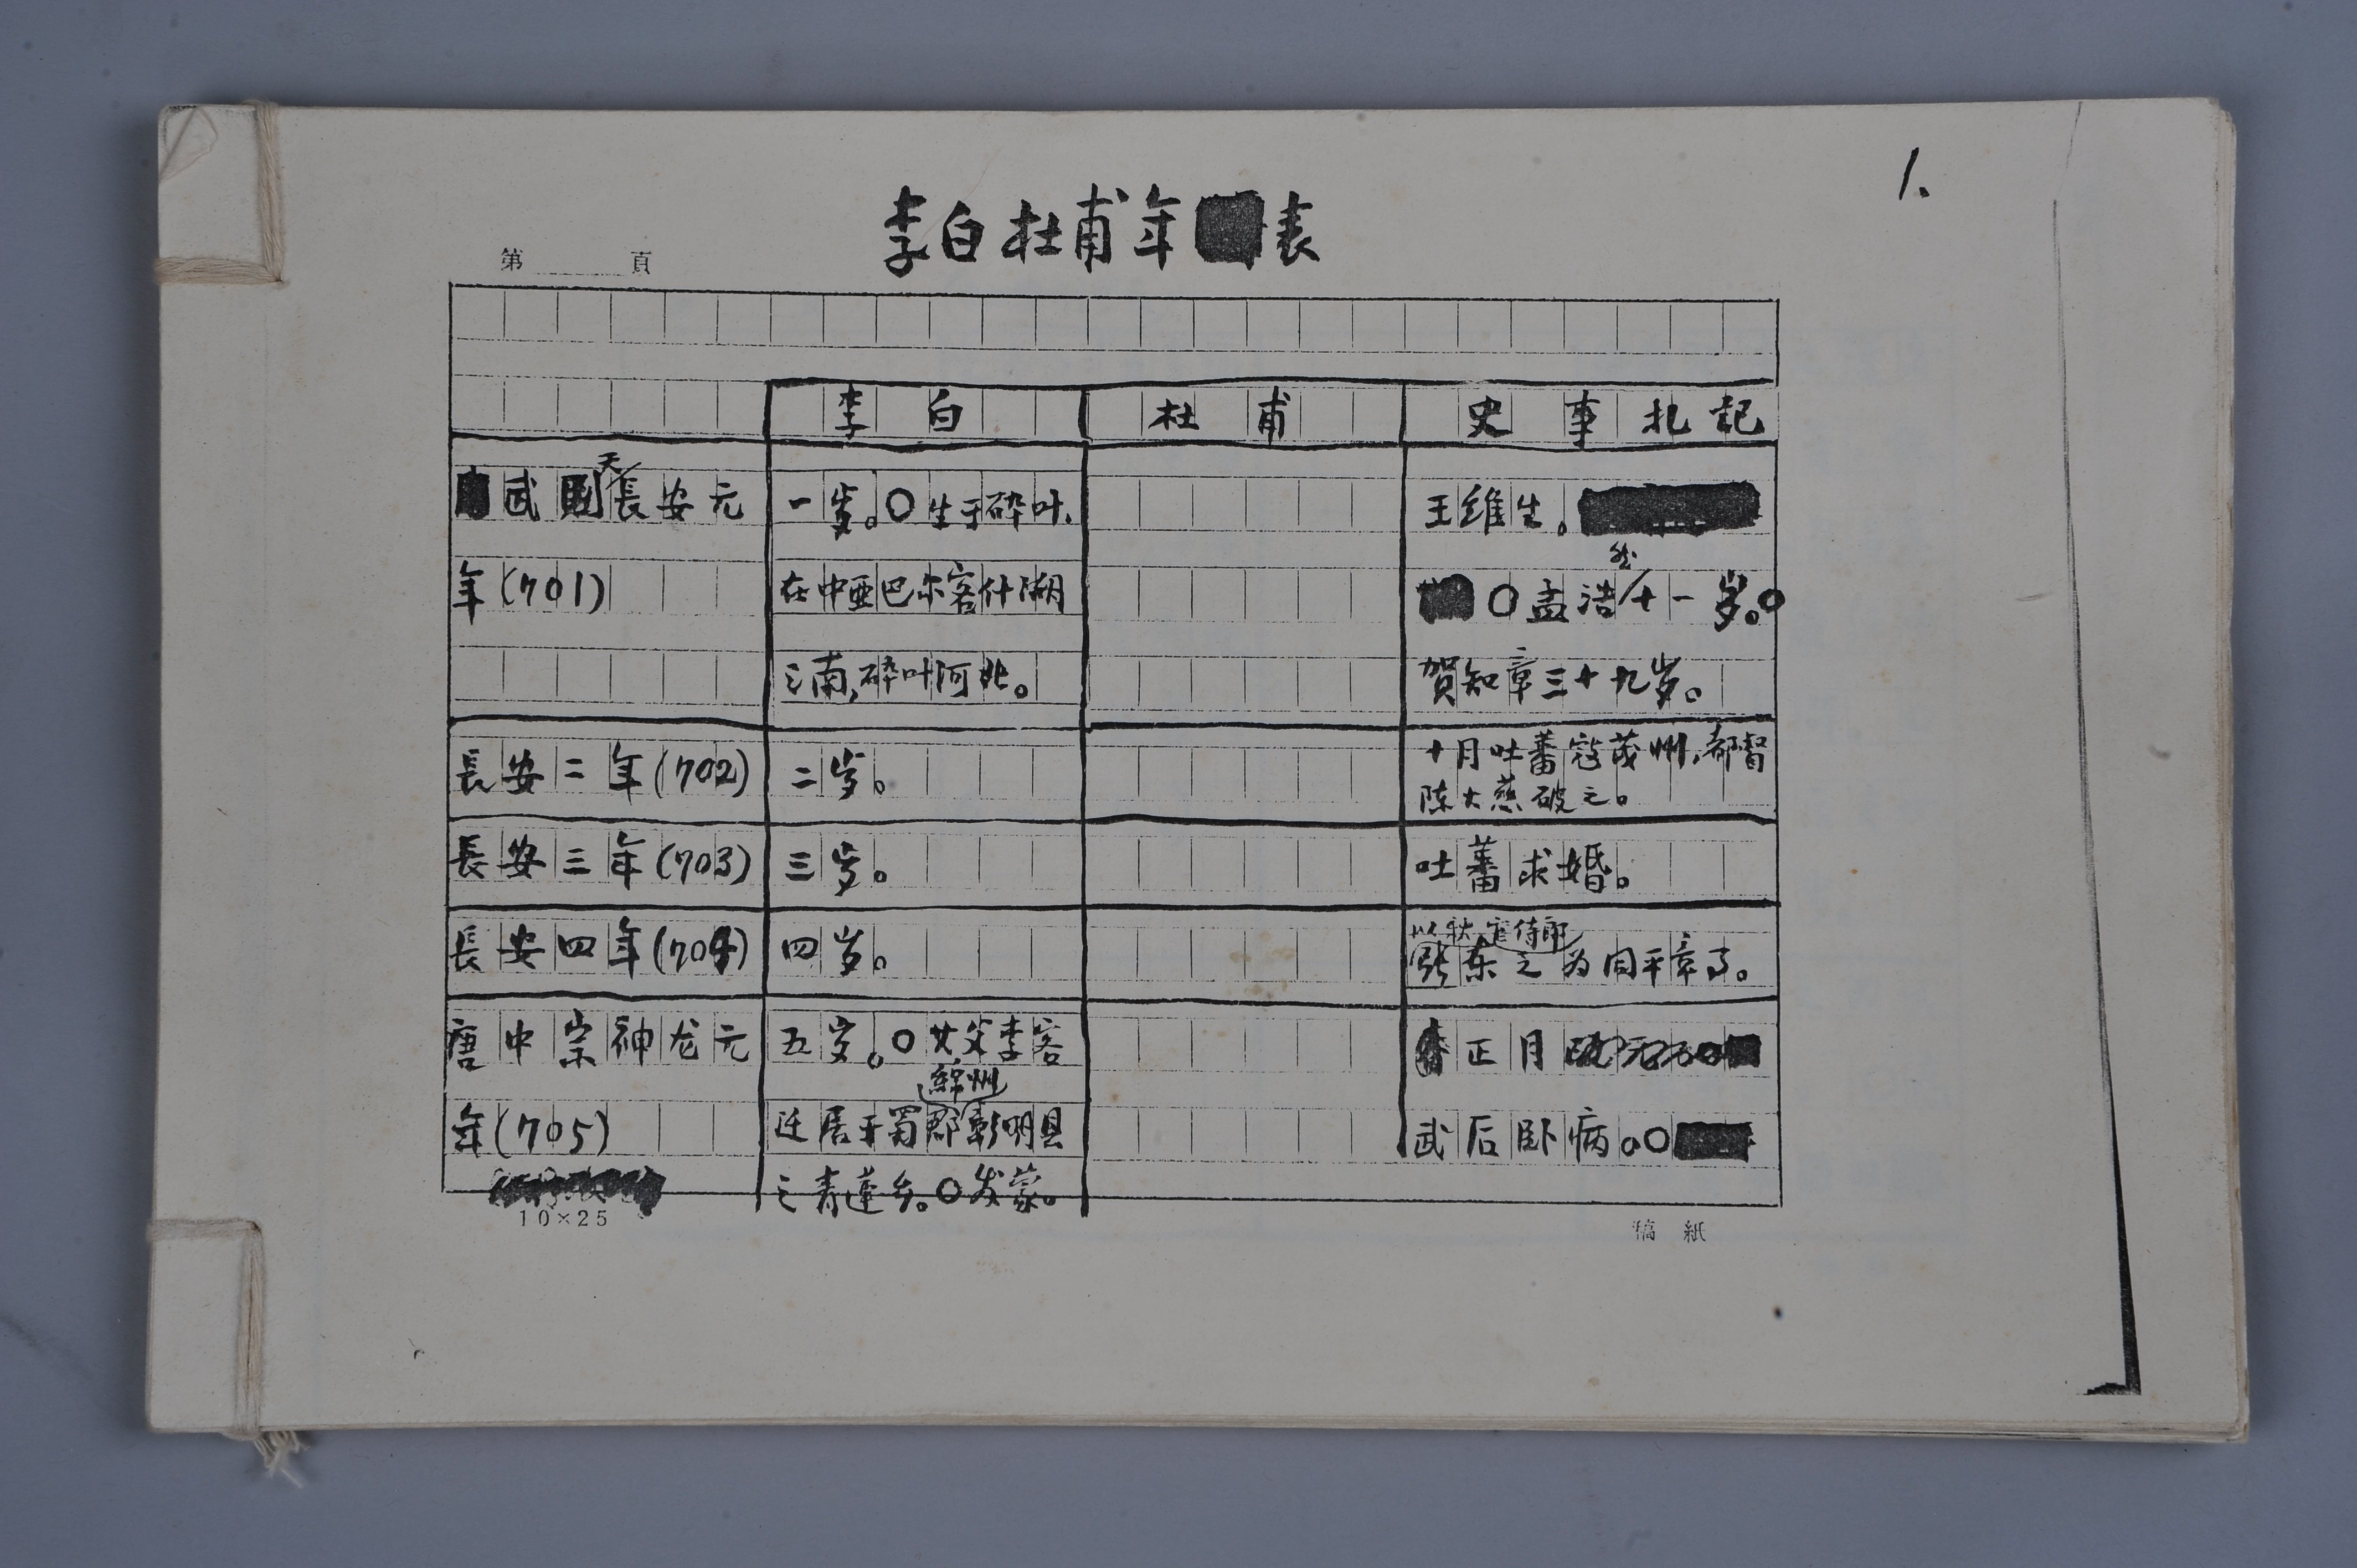 1.
李白杜甫年表
第 頁
李白 杜甫 史事札記
武則天長安元
年(701)
一岁。○生于碎叶,
在中亚巴尔客什湖
之南,碎叶河北。
王维生。
○孟浩然十一岁。○
贺知章三十九岁。
長安二年(702)
二岁。
十月吐蕃寇茂州,都督
陈大慈破之。
長安三年(703)
三岁。
吐蕃求婚。
長安四年(704)
四岁。
以秋官侍郎
张柬之为同平章事。
唐中宗神龙元
年(705)
五岁。○其父李客
迁居于蜀郡绵州彰明县
之青莲乡。○发蒙。
正月
武后卧病。○
10×25
稿紙